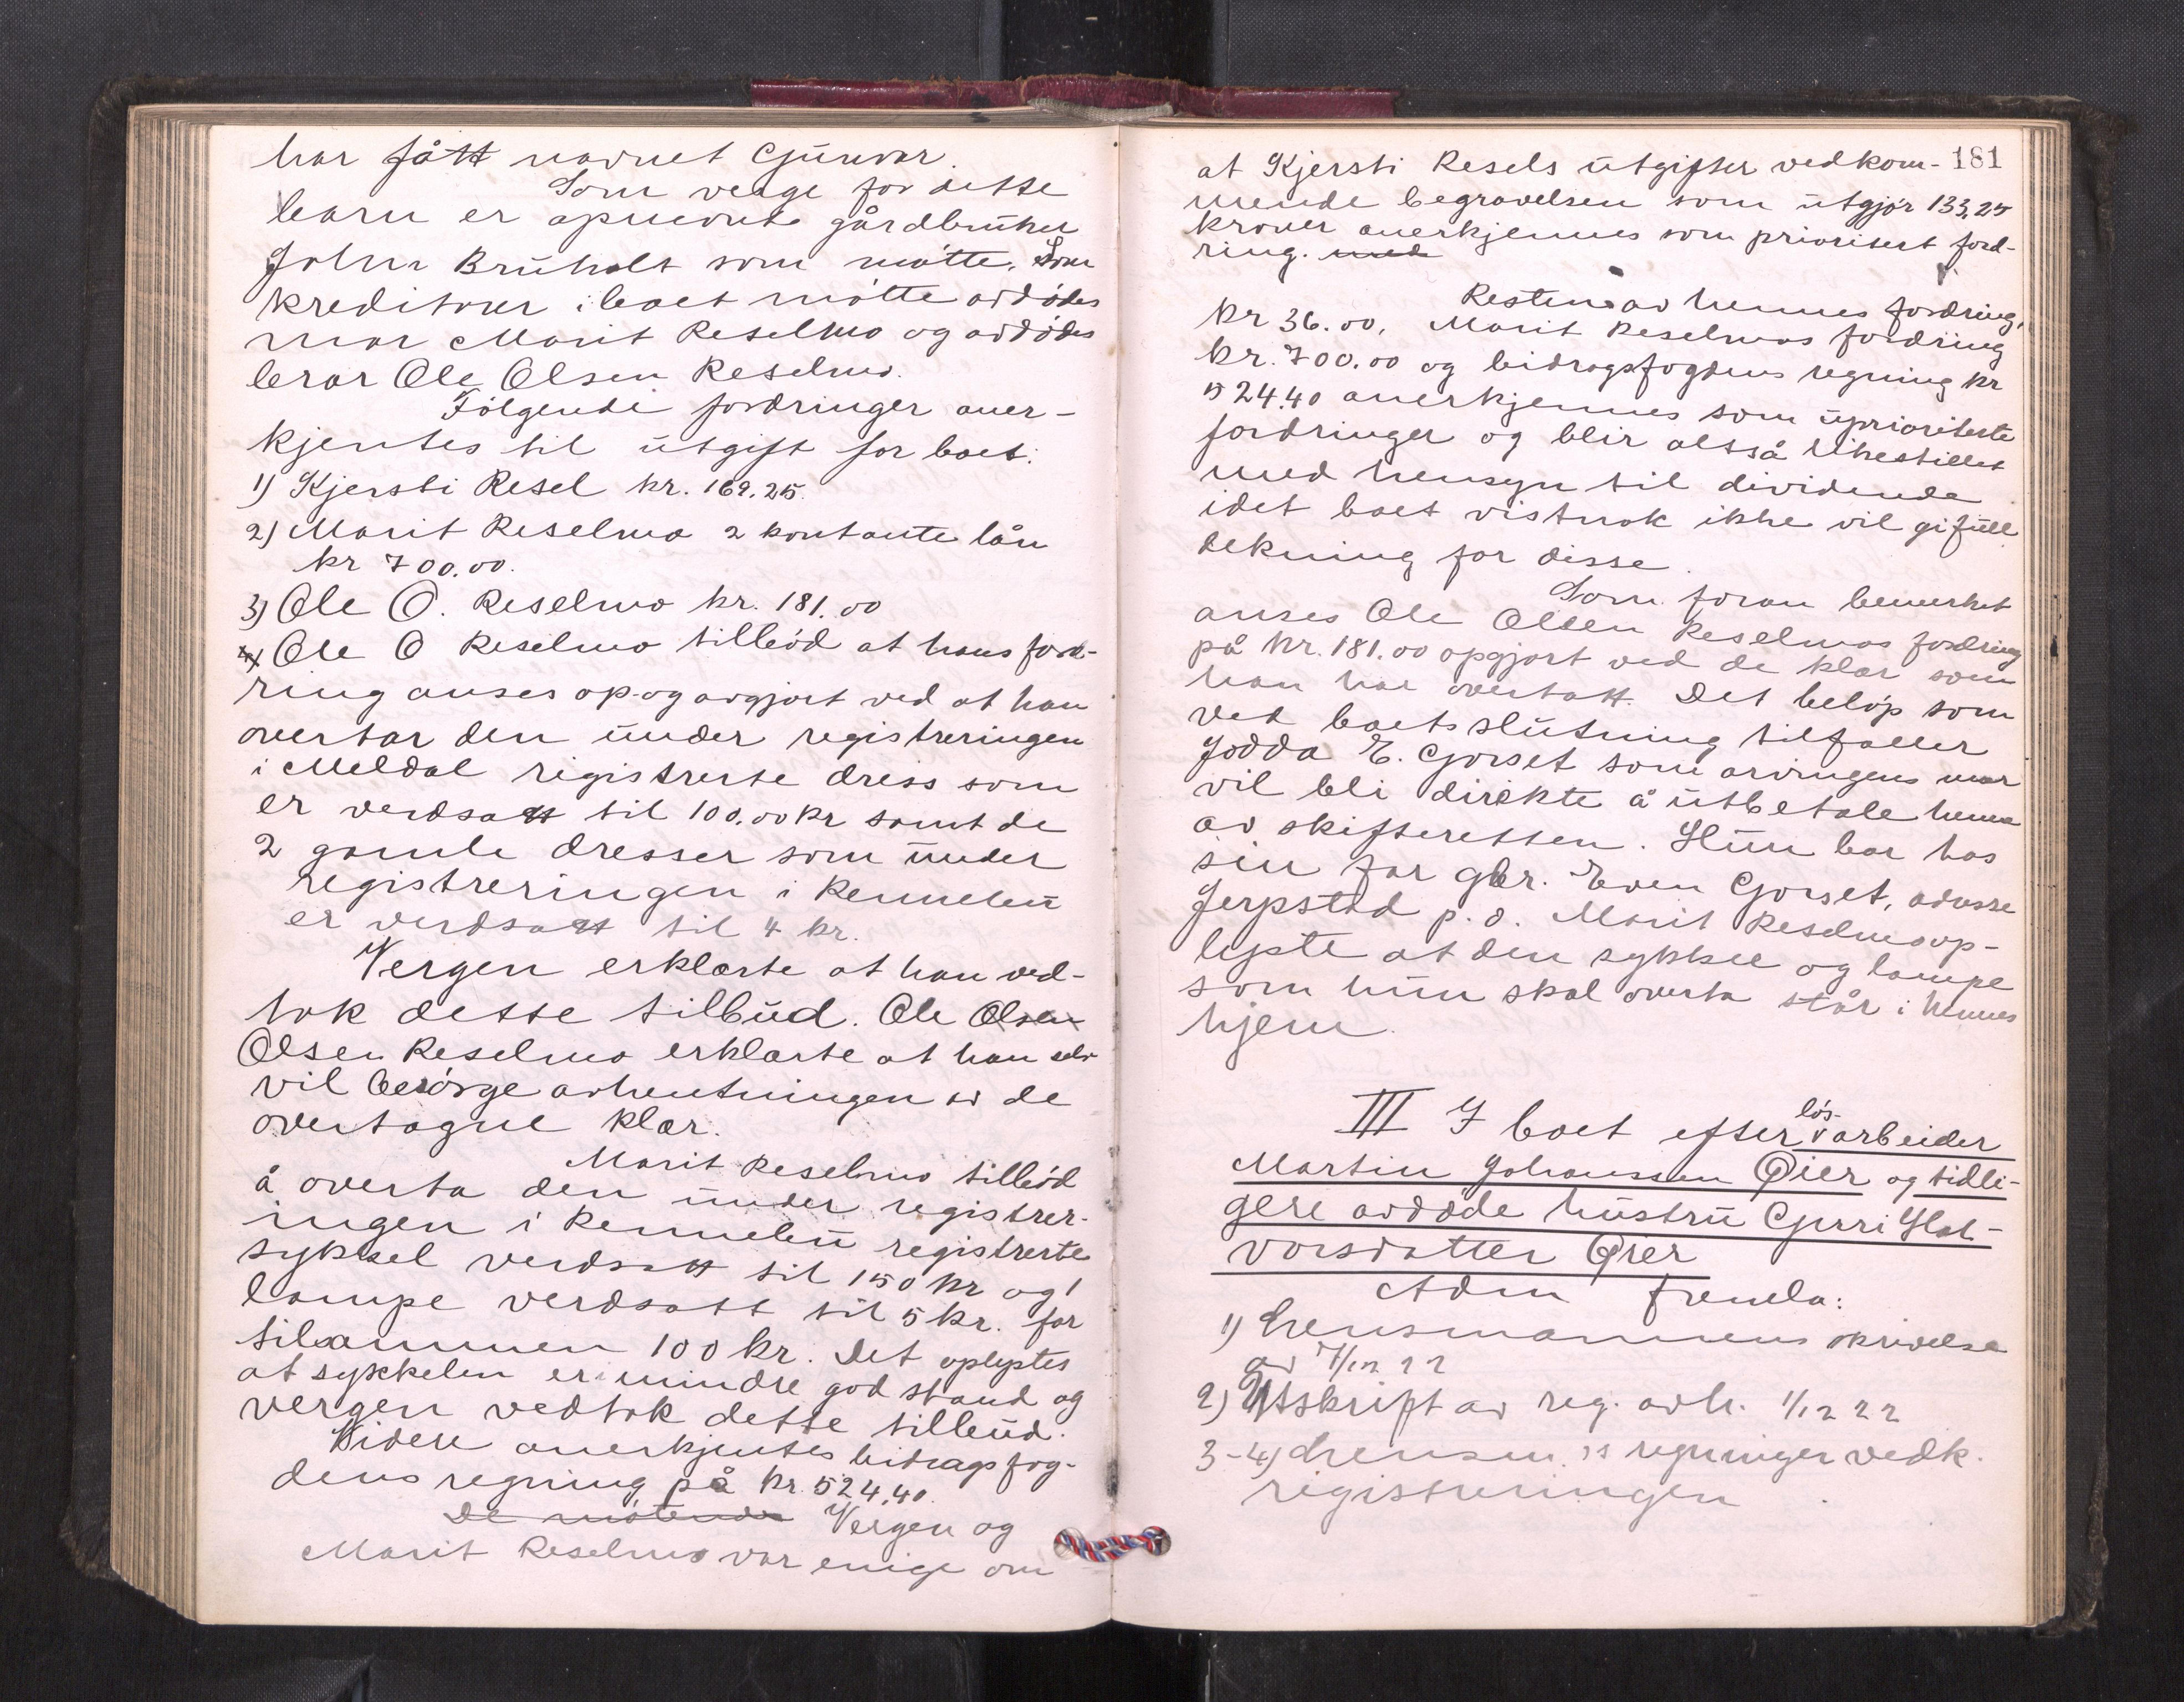 har fått navnet Gunvor.
Som verge for dette
barn er opnevnt gårdbruker
John Bruholt som møtte. Som
kreditorer i boet møtte avdødes
mor Marit Reselmo og avdødes
bror Ole Olsen Reselmo.
Følgende fordringer aner-
kjentes til utgift for boet:
1) Kjersti Resel kr. 169.25.
2) Marit Reselmo 2 kontante lån
kr 700.00.
3) Ole O. Reselmo kr. 181.00
4) Ole O Reselmo tilbød at hans ford-
ring anses op- og avgjort ved at han
overtar den under registreringen
i Meldal registrerte dress som
er verdsatt til 100.00 kr samt de
2 gamle dresser som under
registreringen i Rennebu
er verdsatt til 4 kr.
Vergen erklærte at han ved-
tok dette tilbud. Ole Olsen
Olsen Reselmo erklærte at han selv
vil besørge avhentningen av de
overtagne klær.
Marit Reselmo tilbød
å overta den under registrer-
ingen i Rennebu registrerte
sykkel verdsatt til 150 kr og 1
lampe verdsatt til 5 kr. for
tilsammen 100 kr. Det oplystes
at sykkelen er i mindre god stand og
vergen vedtok dette tilbud.
Videre anerkjentes bidragsfog-
dens regning på kr. 524.40.
De møtende Vergen og
Marit Reselmo var enige om
181
at Kjersti Resels utgifter vedkom-
mende begravelsen som utgjør 133,25
kroner anerkjennes som prioritert ford-
ring. med
Resten av hennes fordring,
kr 36.00, Marit Reselmos fordring
kr. 700.00 og bidragsfogdens regning kr
524.40 anerkjennes som uprioriterte
fordringer og blir altså likestillet
med hensyn til dividende
idet boet vistnok ikke vil gi full
dekning for disse.
Som foran bemerket
anses Ole Olsen Reselmos fordring
på kr. 181.00 opgjort ved de klær som
han har overtatt. Det beløp som
ved boets slutning tilfaller
Jodda E. Gorset som arvingens mor
vil bli direkte å utbetale henne
av skifteretten. Hun bor hos
sin far gbr. Even Gorset, adresse
Jerpstad p.å. Marit Reselmo op-
lyste at den sykkel og lampe
som hun skal overta står i hennes
hjem.
III I boet efter løs-
arbeider
Martin Johanssen Øier og tidli-
gere avdøde hustru Gurri Hal-
vorsdatter Øier
Adm fremla:
1) Lensmannens skrivelse
av 7/12 22
2) Utskrift av reg. avh. 1/12 22
3-4) Lensm. 's regninger vedk.
registreringen